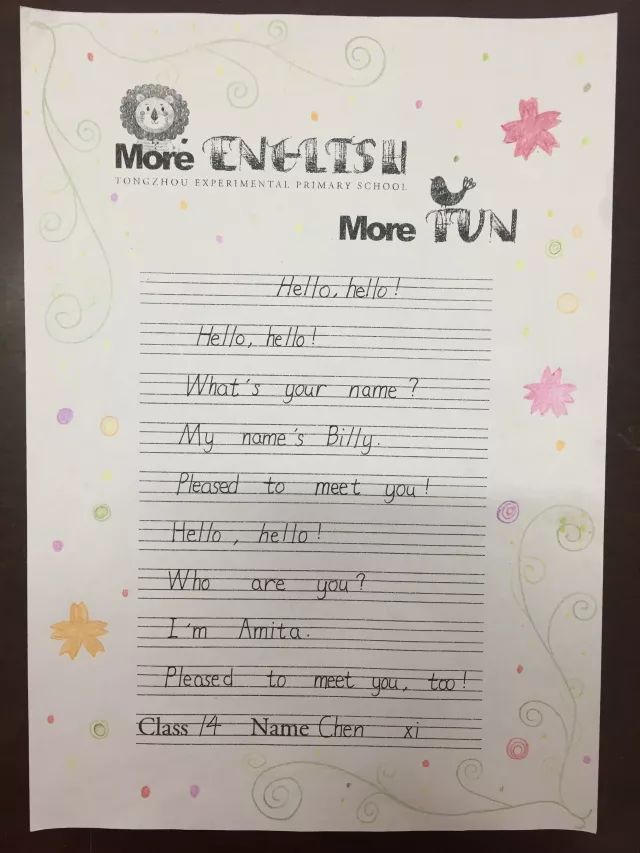 More ENGLISH
TONGZHOU EXPERIMENTAL PRIMARY SCHOOL
More FUN
Hello, hello!
Hello, hello!
What's your name?
My name's Billy.
Pleased to meet you!
Hello, hello!
Who are you?
I'm Amita.
Pleased to meet you, too!
Class 14 Name Chen xi